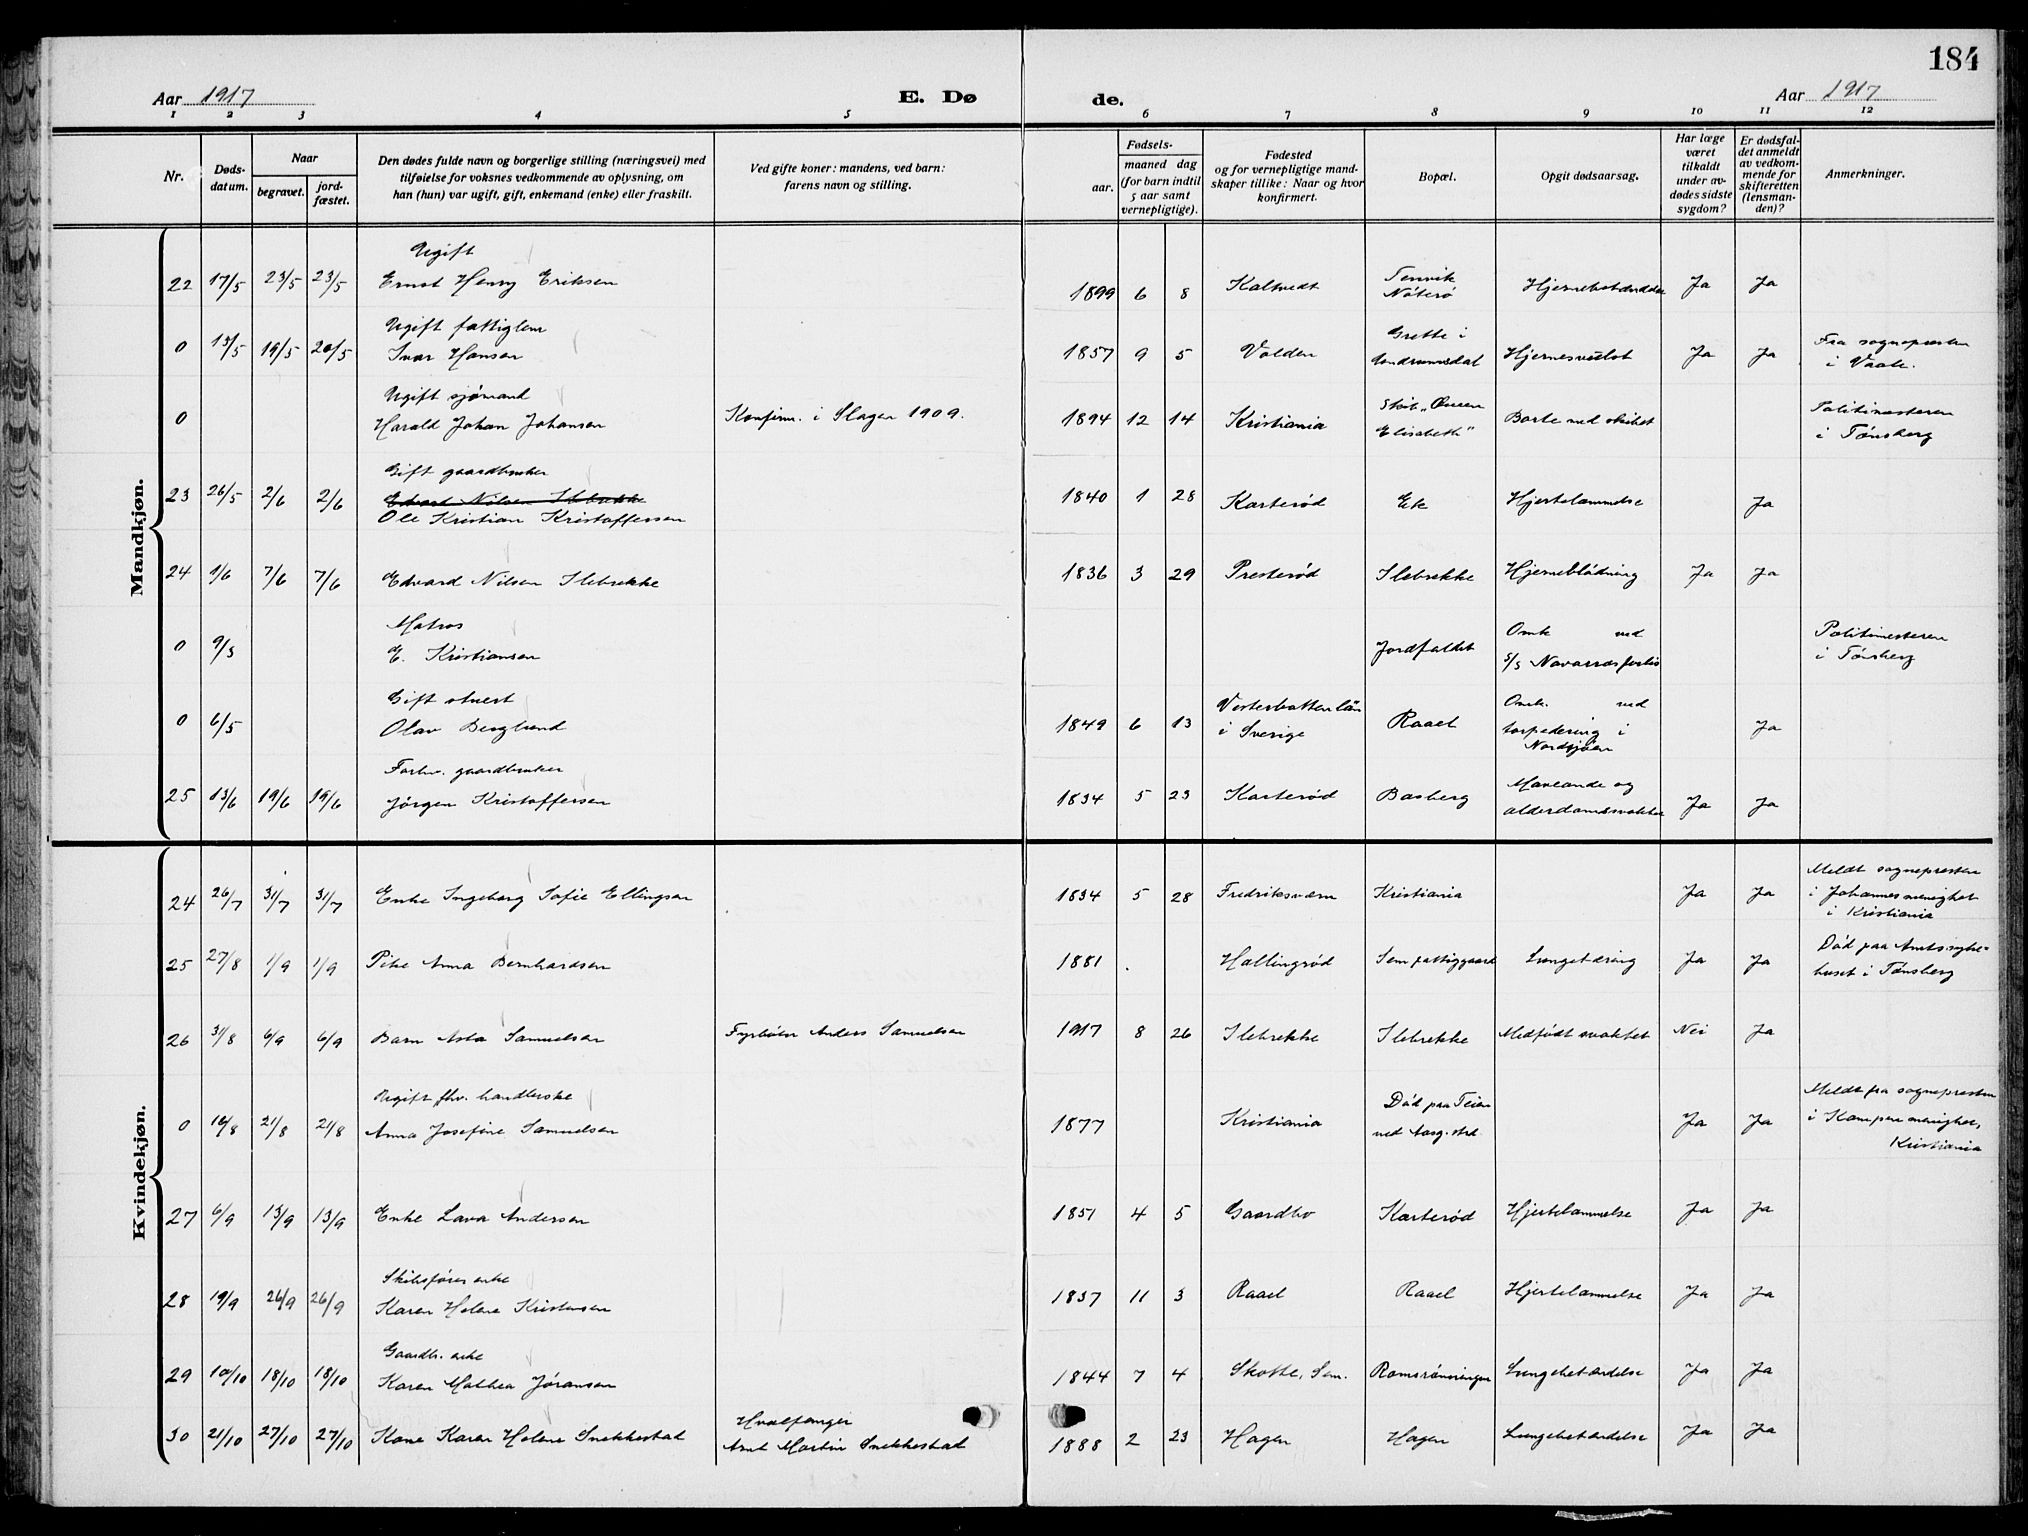 184
Aar 1917
E. Dø
de.
Aar 1917
1 2 3 4 5 6 7 8 9 10 11 12
Nr.
Døds-
datum.
Naar
begravet.
jord-
fæstet.
Den dødes fulde navn og borgerlige stilling (næringsvei) med
tilføielse for voksnes vedkommende av oplysning, om
han (hun) var ugift, gift, enkemand (enke) eller fraskilt.
Ved gifte koner: mandens, ved barn:
farens navn og stilling.
Fødsels-
aar.
maaned dag
(for barn indtil
5 aar samt
vernepligtige).
Fødested
og for vernepligtige mand-
skaper tillike: Naar og hvor
konfirmert.
Bopæl.
Opgit dødsaarsag.
Har læge
været
tilkaldt
under av-
dødes sidste
sygdom?
Er dødsfal-
det anmeldt
av vedkom-
mende for
skifteretten
(lensman-
den)?
Anmerkninger.
Mandkjøn.
Ugift
22 17/5 23/5 23/5 Ernst Henry Eriksen 1899 6 8 Kaltvedt Tenvik
Nøterø Ja Ja
Ugift fattiglem
0 13/5 19/5 20/5 Ivar Hansen 1857 9 5 Volden Grette i
Ja Ja Fra sognepresten
i Vaale.
Ugift sjømand
0 Harald Johan Johansen Konfirm. i Slagen 1909. 1894 12 14 Kristiania Skib "Queen
Elisabeth" Borte med skibet Politimesteren
i Tønsberg
Gift gaardbruker
23 26/5 2/6 2/6 Edvard Nilsen Ilebrekke
Ole Kristian Kristoffersen 1840 1 28 Karterød Eik Hjertelammelse Ja
24 1/6 7/6 7/6 Edvard Nilsen Ilebrekke 1836 3 29 Presterød Ilebrekke Hjerneblødning Ja Ja
Matros
0 9/3 E. Kristiansen Jordfaldet Omk ved
S/S Navarras forlis Politimesteren
i Tønsberg
Gift stuert
0 6/5 Olav Berglund 1849 6 13 Vesterbotten län
i Sverige Raael Omk. ved
torpedering i
Nordsjøen Ja
Forhv. gaardbruker
25 13/6 19/6 19/6 Jørgen Kristoffersen 1834 5 23 Karterød Basberg Maveonde og
alderdomssvakhet Ja Ja
Kvindekjøn.
24 26/7 31/7 31/7 Enke Ingeborg Sofie Ellingsen 1834 5 28 Fredriksværn Kristiania Ja Ja Meldt sognepresten
i Johannes menighet
i Kristiania
25 27/8 1/9 1/9 Pike Anna Bernhardsen 1881 Hallingrød Sem fattiggaard Lungetæring Ja Ja Død paa Amtssyke-
huset i Tønsberg
26 31/8 6/9 6/9 Barn Asta Samuelsen Fyrbøter Anders Samuelsen 1917 8 26 Ilebrekke Ilebrekke Medfødt svakhet Nei Ja
Ugift fhv. handlerske
0 16/8 21/8 21/8 Anna Josefine Samuelsen 1877 Kristiania Død paa Teien
ved Aasg. st. Ja Ja Meldt fra sognepresten
i Kampen menighet,
Kristiania
27 6/9 13/9 13/9 Enke Lava Andersen 1851 4 5 Gaardbo Karterød Hjertelammelse Ja Ja
Skibsfører enke
28 19/9 26/9 26/9 Karen Helene Kristensen 1837 11 3 Raael Raael Hjertelammelse Ja Ja
Gaardb. enke
29 10/10 18/10 18/10 Karen Mathea Jøransen 1844 7 4 Skotte, Sem. Romsrønningen Lungebetændelse Ja Ja
30 21/10 27/10 27/10 Kone Karen Helene Snekkestad Hvalfanger
Arnt Martin Snekkestad 1888 2 23 Hagen Hagen Lungebetændelse Ja Ja